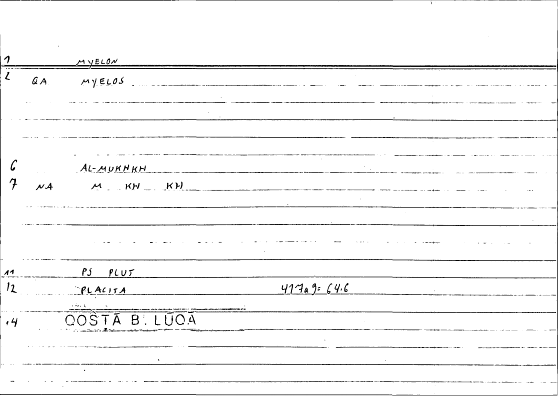 1 MYELON
2 GA MYELOS
6 AL-MUKHKH
7 NA M KH KH
11 PS PLUT
12 PLACITA 417a9= 64.6
14 QOSTĀ B. LŪQĀ